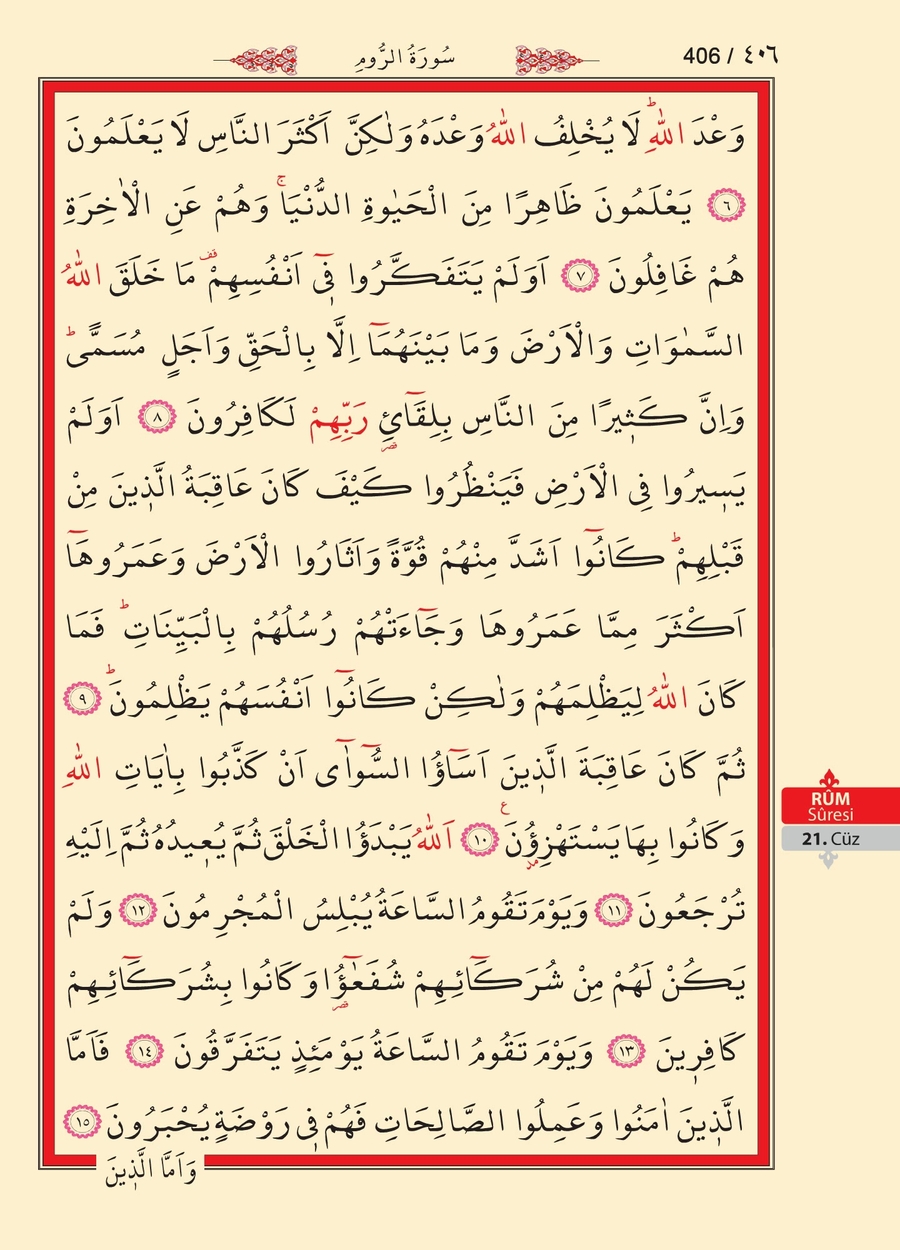 سُورَةُ الرُّومِ
406 / ٤٠٦
وَعْدَ اللّٰهِۜ لَا يُخْلِفُ اللّٰهُ وَعْدَهُ وَلٰكِنَّ اَكْثَرَ النَّاسِ لَا يَعْلَمُونَ
﴿٦﴾ يَعْلَمُونَ ظَاهِرًا مِنَ الْحَيٰوةِ الدُّنْيَاۚ وَهُمْ عَنِ الْاٰخِرَةِ
هُمْ غَافِلُونَ ﴿٧﴾ اَوَلَمْ يَتَفَكَّرُوا ف۪ٓي اَنْفُسِهِمْ۠ مَا خَلَقَ اللّٰهُ
السَّمٰوَاتِ وَالْاَرْضَ وَمَا بَيْنَهُمَٓا اِلَّا بِالْحَقِّ وَاَجَلٍ مُسَمًّىۜ
وَاِنَّ كَث۪يرًا مِنَ النَّاسِ بِلِقَٓائِ۬ رَبِّهِمْ لَكَافِرُونَ ﴿٨﴾ اَوَلَمْ
يَس۪يرُوا فِي الْاَرْضِ فَيَنْظُرُوا كَيْفَ كَانَ عَاقِبَةُ الَّذ۪ينَ مِنْ
قَبْلِهِمْۜ كَانُٓوا اَشَدَّ مِنْهُمْ قُوَّةً وَاَثَارُوا الْاَرْضَ وَعَمَرُوهَٓا
اَكْثَرَ مِمَّا عَمَرُوهَا وَجَٓاءَتْهُمْ رُسُلُهُمْ بِالْبَيِّنَاتِۜ فَمَا
كَانَ اللّٰهُ لِيَظْلِمَهُمْ وَلٰكِنْ كَانُٓوا اَنْفُسَهُمْ يَظْلِمُونَۜ ﴿٩﴾
ثُمَّ كَانَ عَاقِبَةَ الَّذ۪ينَ اَسَٓاؤُا السُّٓوآٰى اَنْ كَذَّبُوا بِاٰيَاتِ اللّٰهِ
وَكَانُوا بِهَا يَسْتَهْزِؤُ۫نَ۟ ﴿١٠﴾ اَللّٰهُ يَبْدَؤُا الْخَلْقَ ثُمَّ يُع۪يدُهُ ثُمَّ اِلَيْهِ
تُرْجَعُونَ ﴿١١﴾ وَيَوْمَ تَقُومُ السَّاعَةُ يُبْلِسُ الْمُجْرِمُونَ ﴿١٢﴾ وَلَمْ
يَكُنْ لَهُمْ مِنْ شُرَكَٓائِهِمْ شُفَعٰٓؤُ۬ا وَكَانُوا بِشُرَكَٓائِهِمْ
كَافِر۪ينَ ﴿١٣﴾ وَيَوْمَ تَقُومُ السَّاعَةُ يَوْمَئِذٍ يَتَفَرَّقُونَ ﴿١٤﴾ فَاَمَّا
الَّذ۪ينَ اٰمَنُوا وَعَمِلُوا الصَّالِحَاتِ فَهُمْ ف۪ي رَوْضَةٍ يُحْبَرُونَ ﴿١٥﴾
وَاَمَّا الَّذ۪ينَ
RÛM
Sûresi
21. Cüz